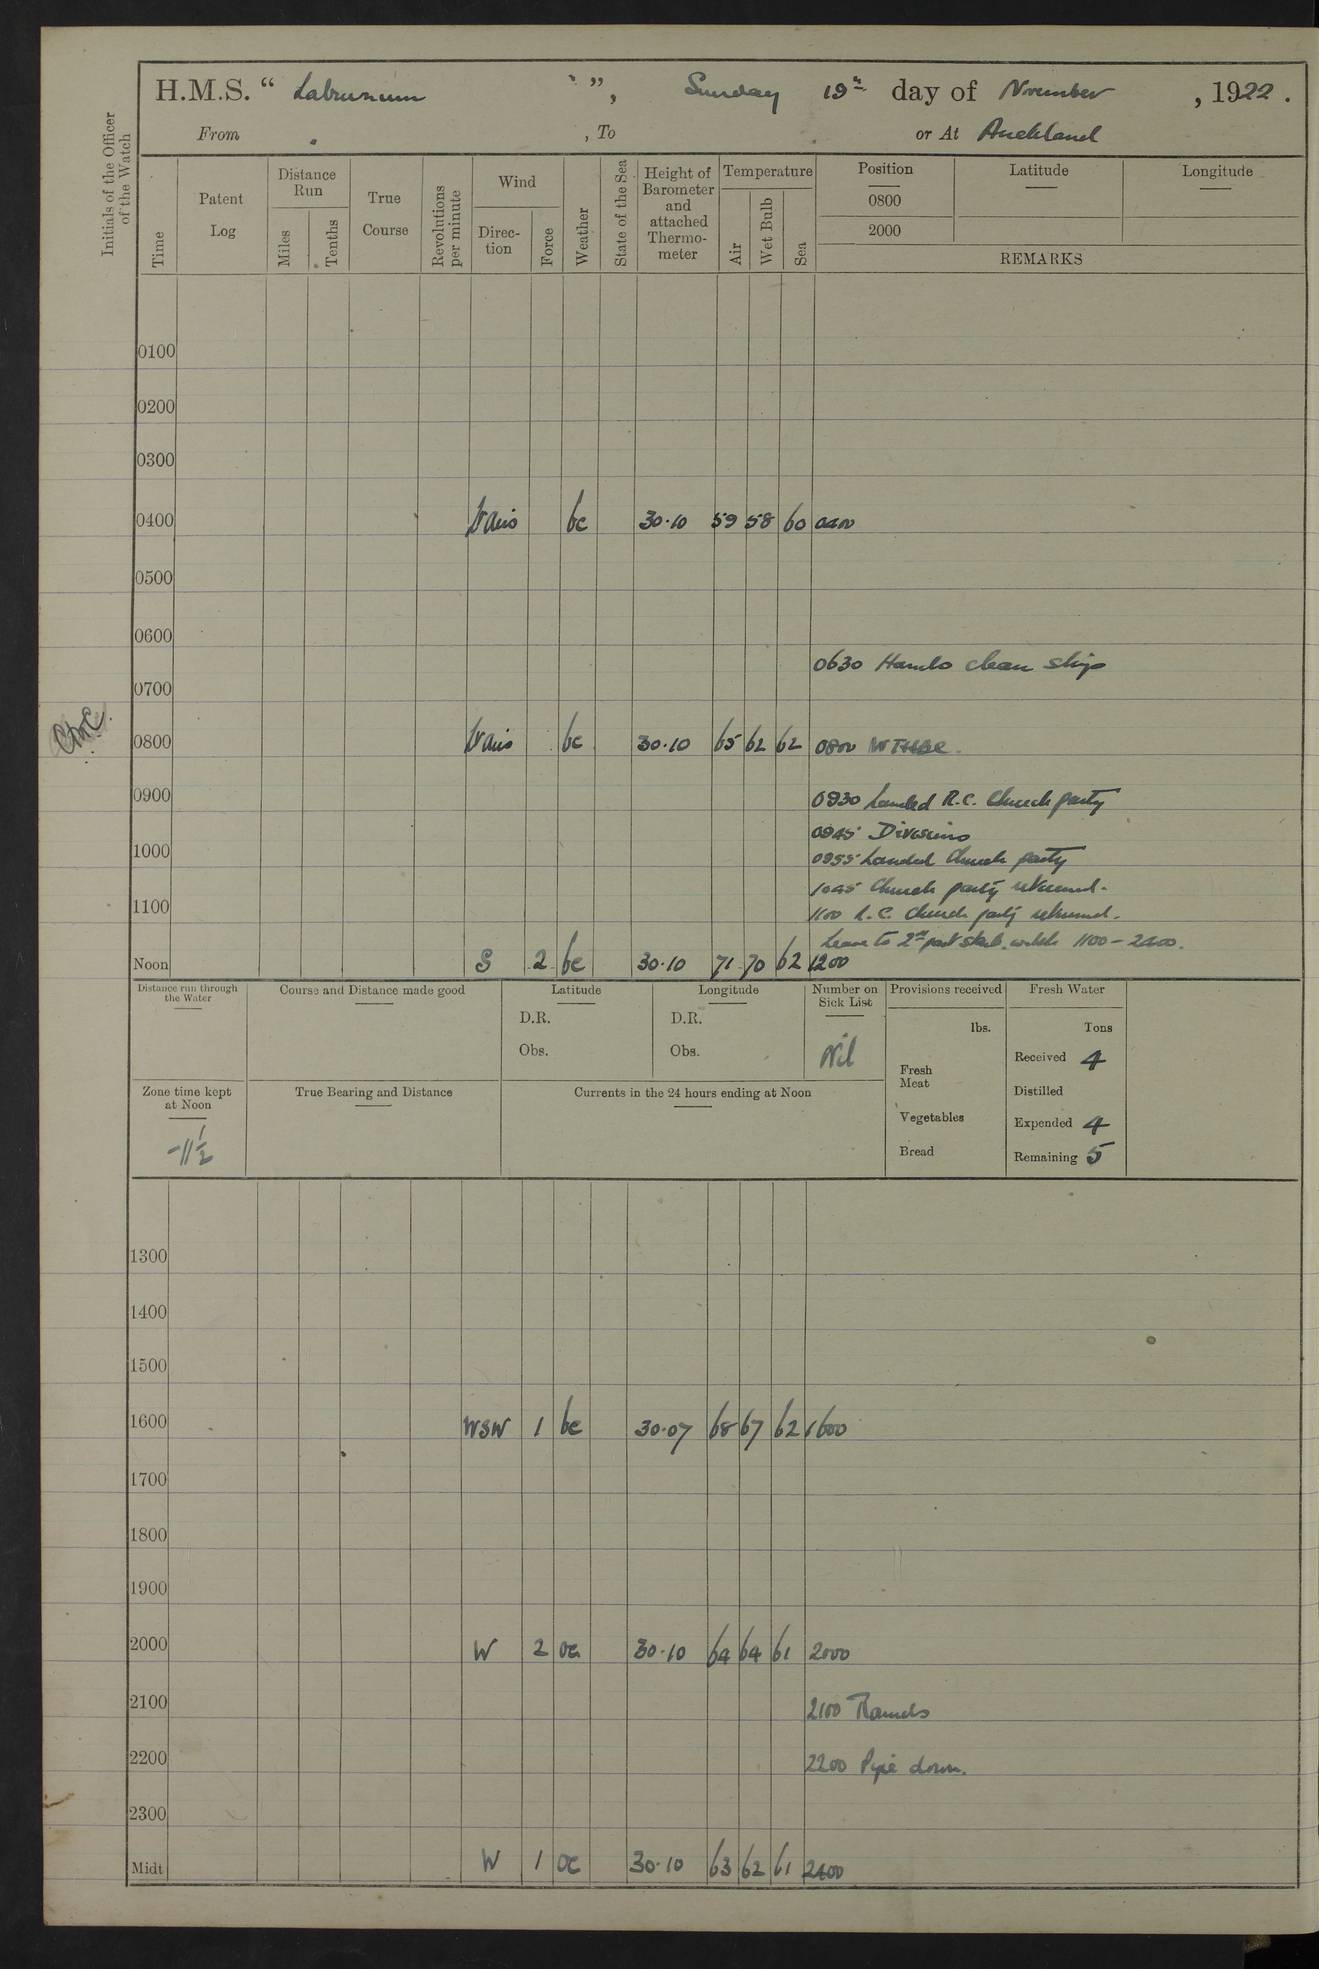 H.M.S. “ Laburnum ”, Sunday 19th day of November, 1922.
From , To or At Auckland
Initials of the Officer of the Watch
Time Patent Log Distance Run Miles Tenths True Course Revolutions per minute Wind Direc-tion Force Weather State of the Sea Height of Barometer and attached Thermo-meter Temperature Air Wet Bulb Sea Position 0800 2000 Latitude Longitude
REMARKS
0100
0200
0300
0400 Vars bc 30.10 59 58 60 0400
0500
0600
0630 Hands clean ship
0700
0800 Vars bc 30.10 65 62 62 0800
0900 0930 Landed R.C. Church party
0945 Divisions
1000 0955 Landed Church party
1045 Church party returned.
1100 1100 R.C. Church party returned.
Leave to 2nd part Starb. watch 1100 - 2400.
Noon S 2 bc 30.10 71 70 62 1200
Distance run through the Water
Course and Distance made good
Latitude
D.R.
Obs.
Longitude
D.R.
Obs.
Number on Sick List
Nil
Provisions received
lbs.
Fresh Meat
Vegetables
Bread
Fresh Water
Tons
Received 4
Distilled
Expended 4
Remaining 5
Zone time kept at Noon
-11 1/2
True Bearing and Distance
Currents in the 24 hours ending at Noon
1300
1400
1500
1600 WSW 1 bc 30.07 68 67 62 1600
1700
1800
1900
2000 W 2 oc 30.10 64 64 61 2000
2100 2100 Rounds
2200 2200 Pipe down.
2300
Midt W 1 oc 30.10 63 62 61 2400